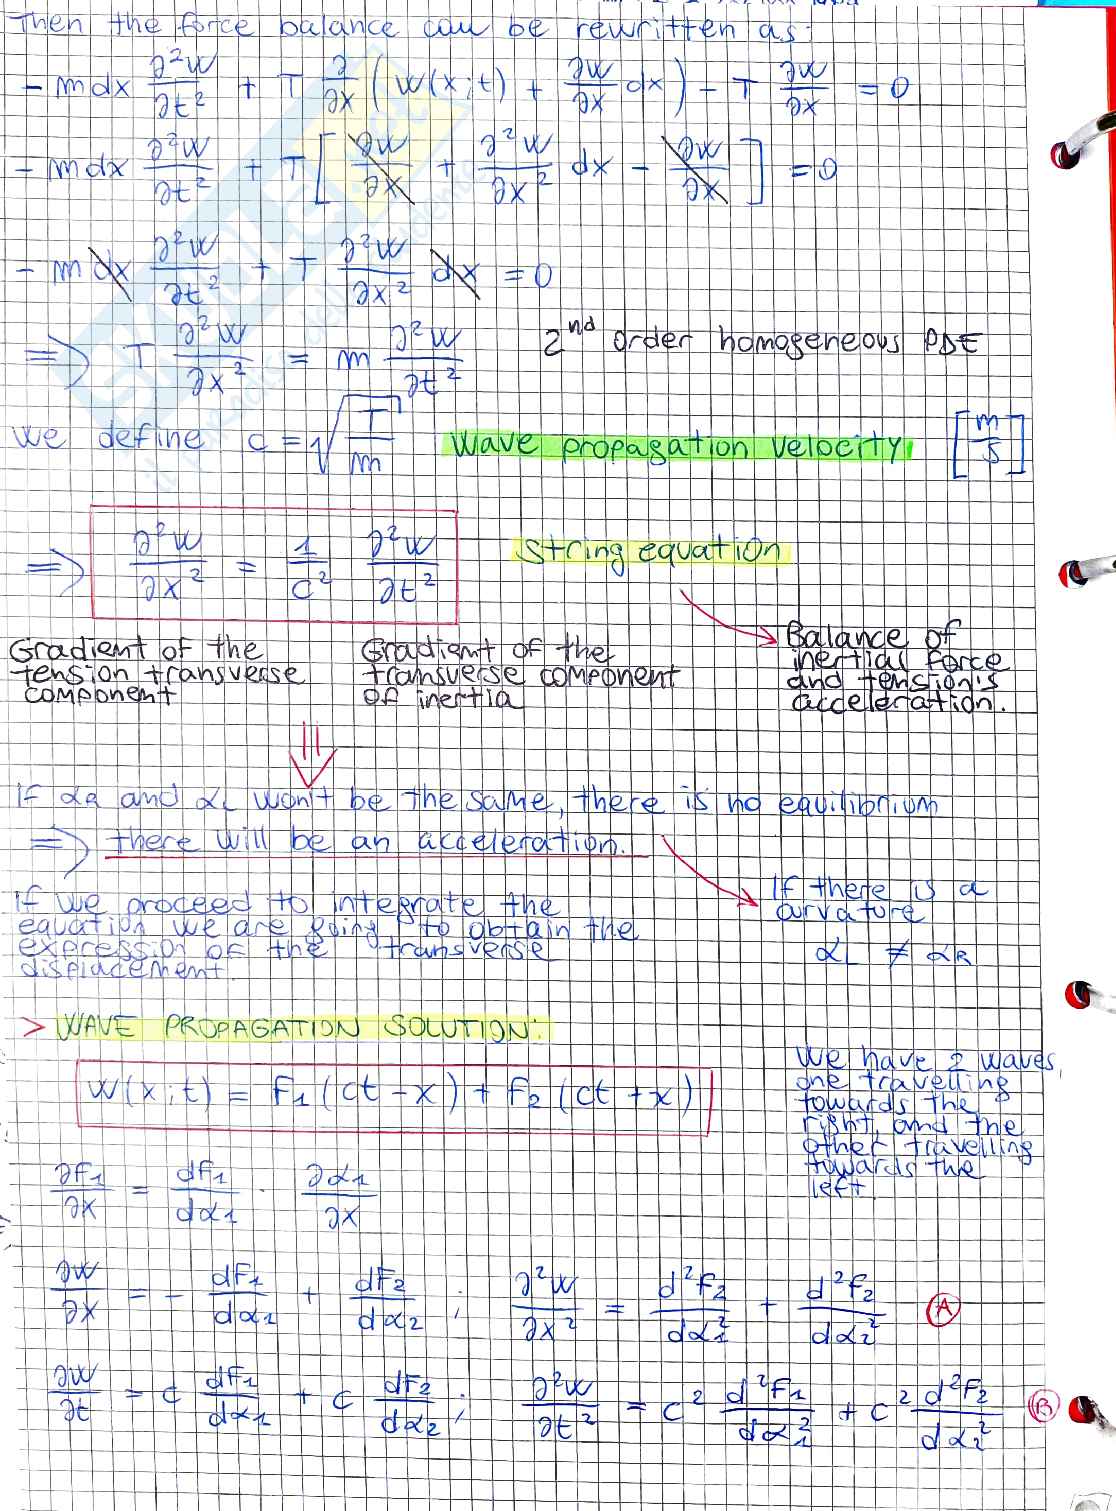 Then the force balance can be rewritten as:
- m dx ∂²w/∂t² + T ∂/∂x (w(x;t) + ∂w/∂x dx) - T ∂w/∂x = 0
- m dx ∂²w/∂t² + T [∂w/∂x + ∂²w/∂x² dx - ∂w/∂x] = 0
- m dx ∂²w/∂t² + T ∂²w/∂x² dx = 0
=> T ∂²w/∂x² = m ∂²w/∂t² 2nd order homogeneous PDE
We define c = √(T/m) wave propagation velocity [m/s]
=> ∂²w/∂x² = 1/c² ∂²w/∂t² String equation
Gradient of the
tension transverse
component
Gradient of the
transverse component
of inertia
Balance of
inertial force
and tension's
acceleration.
If αR and αL won't be the same, there is no equilibrium
=> there will be an acceleration.
If there is a
curvature
αL ≠ αR
If we proceed to integrate the
equation we are going to obtain the
expression of the transverse
displacement.
> WAVE PROPAGATION SOLUTION:
w(x;t) = f1 (ct - x) + f2 (ct + x)
We have 2 waves,
one travelling
towards the
right, and the
other travelling
towards the
left.
∂f1/∂x = df1/dα1 · ∂α1/∂x
∂w/∂x = - df1/dα1 + df2/dα2 ; ∂²w/∂x² = d²f2/dα1² + d²f2/dα2² (A)
∂w/∂t = c df1/dα1 + c df2/dα2 ; ∂²w/∂t² = c² d²f1/dα1² + c² d²f2/dα2² (B)